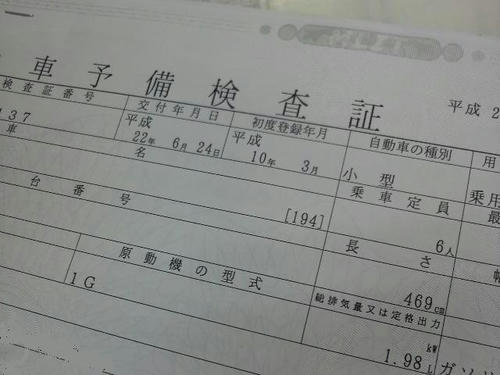 車予備検査証
平成 2
検査証番号 交付年月日 初度登録年月 自動車の種別 用
137 平成 22年 6月 24日 平成 10年 3月 小型 乗用
車 名 乗車定員 最
6人
台番号 [194] 長さ 幅
469cm
原動機の型式 総排気量又は定格出力
1G kW
1.98L ガソリ